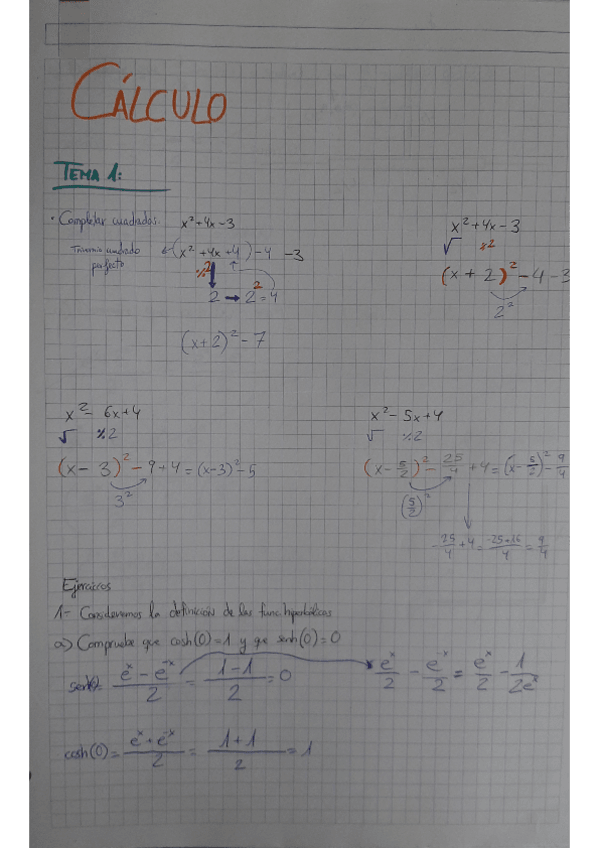 CÁLCULO
TEMA 1:
• Completar cuadrados. x²+4x-3
Trinomio cuadrado perfecto ← (x²+4x+4)-4 -3
%2
2 → 2² = 4
(x+2)² - 7
x²+4x-3
√ %2
(x + 2)² - 4 - 3
2²
x² - 6x+4
√ %2
(x - 3)² - 9+4 = (x-3)² - 5
3²
x² - 5x+4
√ %2
(x - 5/2)² - 25/4 + 4 = (x - 5/2)² - 9/4
(5/2)²
- 25/4 + 4 = -25+16/4 = 9/4
Ejercicios
1- Consideremos la definición de las func. hiperbólicas
a) Compruebe que cosh(0)=1 y que senh(0)=0
senh(0)= eˣ - e⁻ˣ/2 = 1-1/2 = 0
eˣ/2 - e⁻ˣ/2 = eˣ/2 - 1/2eˣ
cosh(0)= eˣ + e⁻ˣ/2 = 1+1/2 = 1